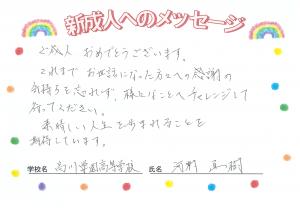 新成人へのメッセージ
ご成人 おめでとうございます。
これまで お世話になった方々への感謝の
気持ちを忘れず、様々なことへチャレンジして
行ってください。
素晴しい人生を歩まれることを
期待しています。
学校名 高川学園高等学校 氏名